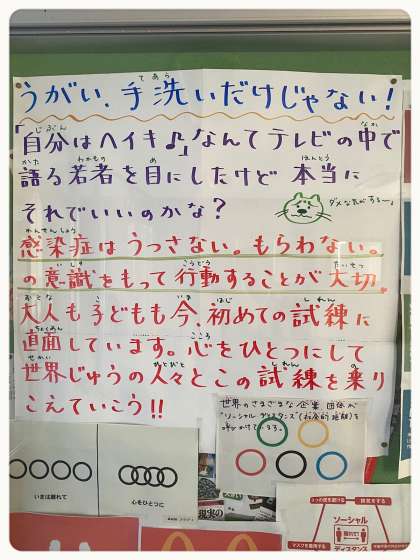 うがい、手洗いだけじゃない!
「自分はヘイキ♪」なんてテレビの中で
語る若者を目にしたけど 本当に
それでいいのかな?
ダメな気がする〜。
感染症はうっさない。もらわない。
の意識をもって行動することが大切。
大人も子どもも今、初めての試練に
直面しています。心をひとつにして
世界じゅうの人々とこの試練を乗り
こえていこう!!
世界のさまざまな企業、団体が
"ソーシャルディスタンス"(社会的距離)を
呼びかけています。
いまは離れて
心をひとつに
現実の
3つの密を避ける
換気をする
ソーシャル
離れて!
マスクを着用する
ディスタンス